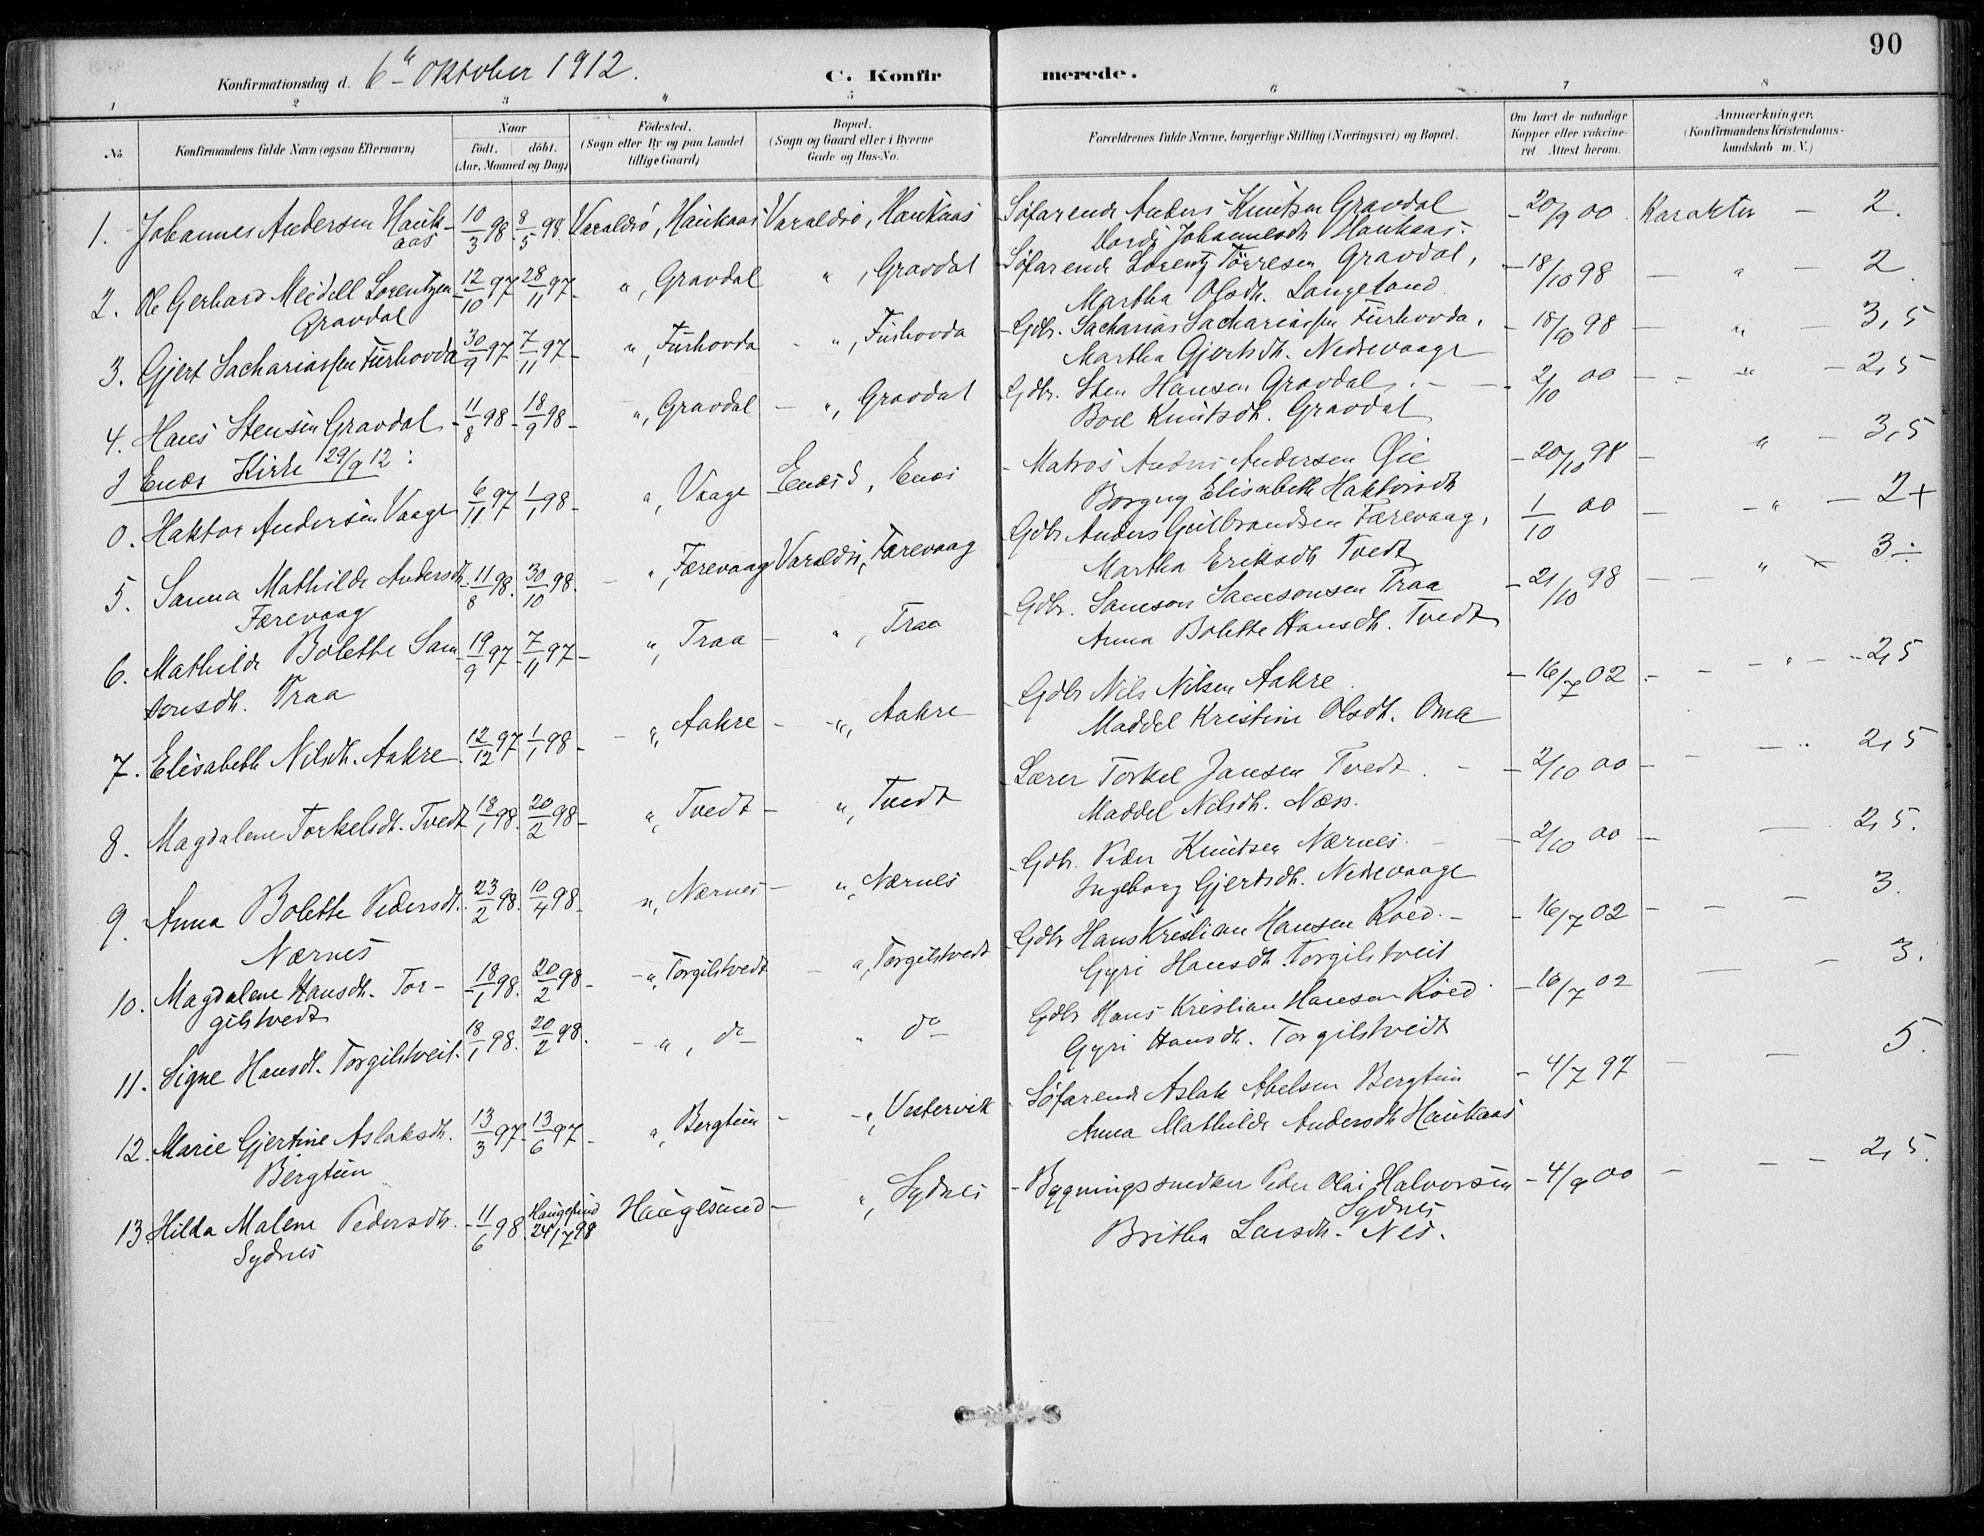 90
Konfirmationsdag d. 6te Oktober 1912. C. Konfirmerede.
1 2 3 4 5 6 7 8
No. Konfirmandens fulde Navn (ogsaa Efternavn) Naar født. døbt. (Aar, Maaned og Dag) Fødested. (Sogn eller By og paa Landet tillige Gaard) Bopæl. (Sogn og Gaard eller i Byerne Gade og Hus-No. Forældrenes fulde Navne, borgerlige Stilling (Næringsvei) og Bopæl. Om havt de naturlige Kopper eller vakcineret. Attest herom. Anmærkninger. (Konfirmandens Kristendomskundskab m. V.)
1. Johannes Andersen Haukaas 10/3 98. 8/5 98. Varaldsø, Haukaas Varaldsø, Haukaas Søfarende Anders Knutsen Gravdal 20/9 00. Karakter - 2.
Dordi Johannesdtr Haukaas.
2. Ole Gerhard Meidell Lorentzen 12/10 97 28/11 97 ", Gravdal ", Gravdal Søfarende Lorentz Tørresen Gravdal, 18/10 98 - " - 2.
Gravdal Martha Olsdtr. Langeland
3. Gjert Sachariassen Furhovda 30/9 97 7/11 97 ", Furhovda ", Furhovda Gdbr. Sacharias Sachariassen Furhovda, 18/10 98 - " 3,5
Martha Gjertsdtr. Nedrevaage
4. Hans Stensen Gravdal 11/8 98 18/9 98 ", Gravdal - ", Gravdal Gdbr. Sten Hansen Gravdal. 2/10 00 - " - 2,5
Boel Knutsdtr. Gravdal
I Enæs Kirke 29/9 12:
0. Haktor Andersen Vaage 6/11 97 1/1 98 ", Vaage Enæs S, Enæs Matros Anders Andersen Øie 20/10 98 - " - 3,5
Borgny Elisabeth Haktorsdtr
5. Sanna Mathilde Andersdtr. 11/8 98. 30/10 98. ", Færevaag Varaldsø, Færevaag Gdbr Anders Gulbrandsen Færevaag, 1/10 00 - " - 2+
Færevaag Martha Eriksdtr Tvedt
6. Mathilde Bolette Sam 19/9 97 7/11 97 ", Traa - ", Traa Gdbr. Samson Samsonsen Traa 21/10 98 - " 3÷
sonsdtr. Traa Anna Bolette Hansdtr. Tvedt
7. Elisabeth Nilsdtr. Aakre 12/12 97 1/1 98 ", Aakre - ", Aakre Gdbr Nils Nilsen Aakre. 16/7 02 - " - 2,5
Maddel Kristine Olsdtr. Oma
8. Magdalene Torkelsdtr. Tvedt 18/1 98. 20/2 98 ", Tvedt - ", Tvedt Lærer Torkel Jansen Tvedt. 2/10 00 - " 2,5
Maddel Nilsdtr. Næss.
9. Anna Bolette Pedersdtr. 23/2 98. 10/4 98. ", Nærnes - ", Nærnes Gdbr. Peder Knutsen Nærnes. 2/10 00 - 2,5.
Nærnes Ingeborg Gjertsdtr. Nedrevaage
10. Magdalene Hansdtr. Tor- 18/1 98. 20/2 98 ", Torgilstvedt ", Torgilstvedt Gdbr Hans Kristian Hansen Røed. 16/7 02 - 3.
gilstvedt Gyri Hansdtr. Torgilstveit
11. Signe Hansdtr. Torgilstveit. 18/1 98. 20/2 98. ", do " do Gdbr Hans Kristian Hansen Røed. 16/7 02 - 3.
Gyri Hansdtr. Torgilstveidt
12. Marie Gjertine Aslaksdtr. 13/3 97. 13/6 97 ", Bergtun - ", Vestervik Søfarende Aslak Abelsen Bergtun 4/7 97 - 5.
Bergtun Anna Mathilde Andersdtr Haukaas
13. Hilda Malene Pedersdtr. 11/6 98. Haugesund 24/7 98 Haugesund - ", Sydnes Bygningssnedker Peder Olai Halvorsen 4/9 00 - 2,5.
Sydnes Sydnes
Britha Larsdtr. Nes.